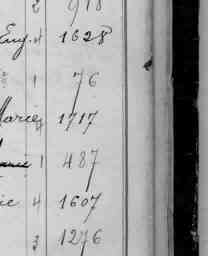 2 918
Eug. 4 1628
1 76
Marie 4 1717
1 487
ie 4 1607
3 1276